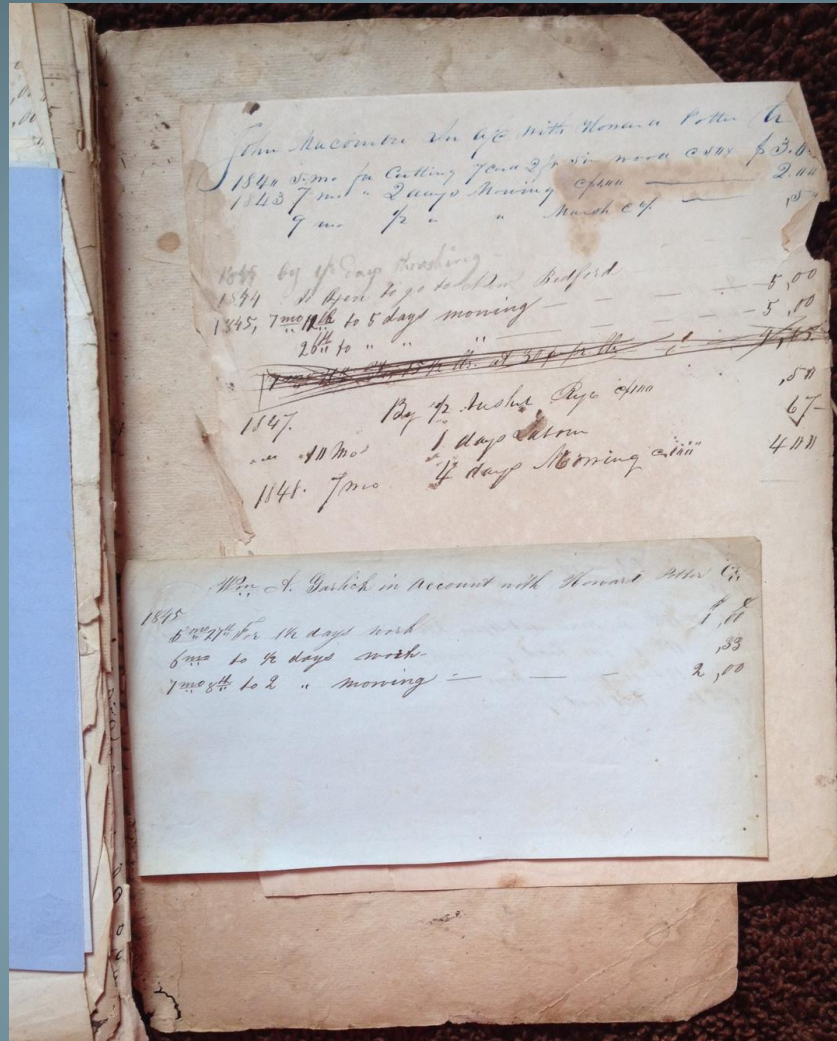 John Macomber in a/c with Howard Potter Cr
184 5 mo for Cutting 7 cord 2 ft wood $3.
1843 7 mo " 2 days Mowing 2.00
9 mo 1/2 " " Marsh ,5
by days thrashing
1844 to go to New Bedford 5,00
1845, 7mo 11th to 5 days mowing — — — — 5,00
26th to " " "
1847. By 1/2 bushel Rye ,50
Mo 1 days Labour 67
1848. 7mo 4 days Mowing 400
Wm A. Garlick in Account with Howard Potter Cr.
1845
5mo 27th For 1½ days work 1,00
6mo to ½ days work ,33
7mo 8th to 2 " mowing — — — 2,00